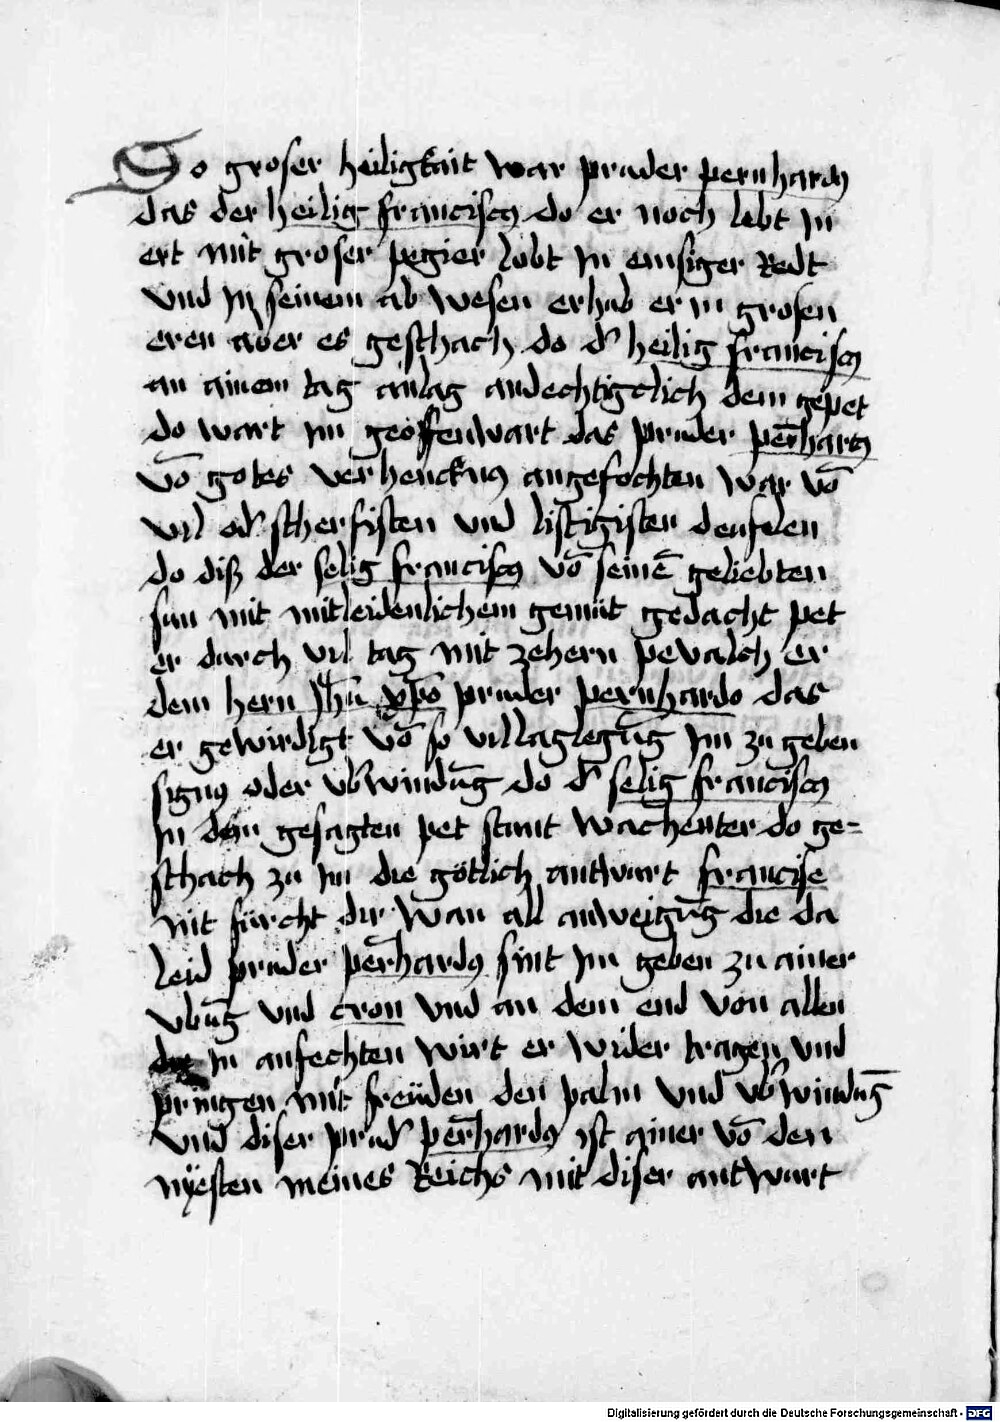 So groser heiligkait war pruder pernhardus
das der heilig franciscus do er noch lebt in
ert mit groser pegier lobt in emsiger Redt
vnd in seinem ab wesen erhub er in grosen
eren aber es geschach do d' heilig franciscus
an ainem tag anlag andechtigclich dem gepet
do wart im geoffenwart das pruder per̄hardus
vō gotes verhencknus angefochten war vō
vil od' scherfisten vnd listigisten deufelen
do diß der selig franciscus vō seinē geliebten
sun mit mitleidenlichem gemüt gedacht pet
er durch vil tag mit zehern pevalch er
dem hern Jh̄u xp̄o pruder pernhardo das
er gewirdigt vō so villaglegūg im zu geben
signus oder vb'windūg do d' selig franciscus
in dem gesagten pet stunt wachenter do ge=
schach zu im die götlich antwurt francise
nit fürcht dir wan all anweigūg die da
leid pruder per̄hardus sint im geben zu ainer
vbūg vnd cron vnd an dem end von allen
die in anfechten wirt er wider tragen vnd
pringen mit freüden den palm vnd vb'windūg
vnd diser prud' per̄hardus ist ainer vō den
nÿesten meines Reichs mit diser antwurt
Digitalisierung gefördert durch die Deutsche Forschungsgemeinschaft - DFG